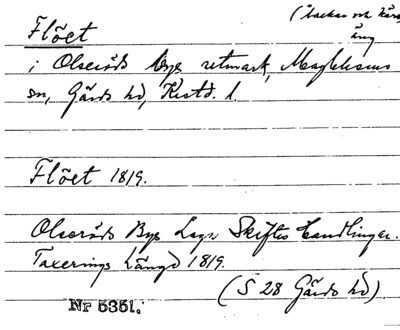 (backar och kärr
äng
Flöet
i Olseröds Bys utmark, Maglehems
sn, Gärds hd, Kristd. l.
Flöet 1819.
Olseröds Bys Laga Skiftes Handlingar.
Taxerings Längd 1819.
(S 28 Gärds hd)
Nr 5351.